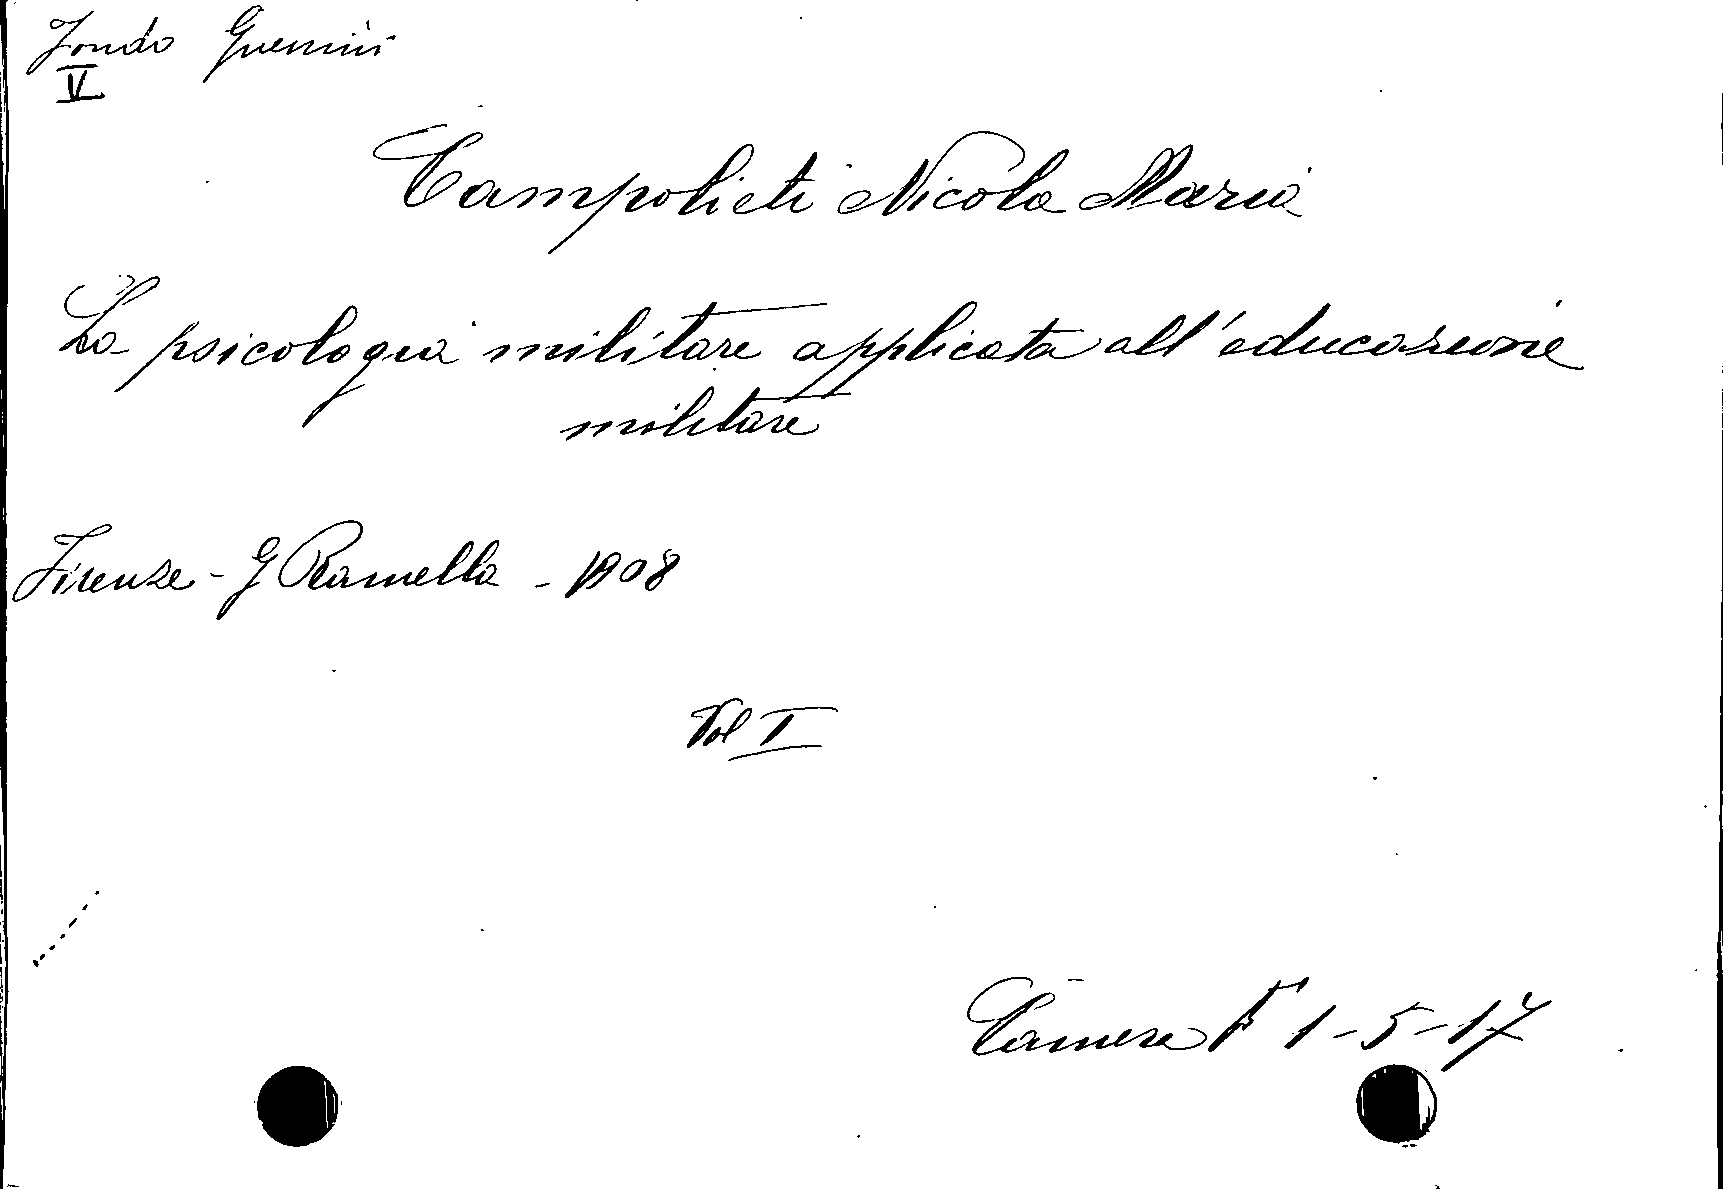 Fondo Guerrini
V
Campolieti Nicola Maria
La psicologia militare applicata all'educazione
militare
Firenze - G Ramella - 1908
Vol I
Camera F 1-5-17